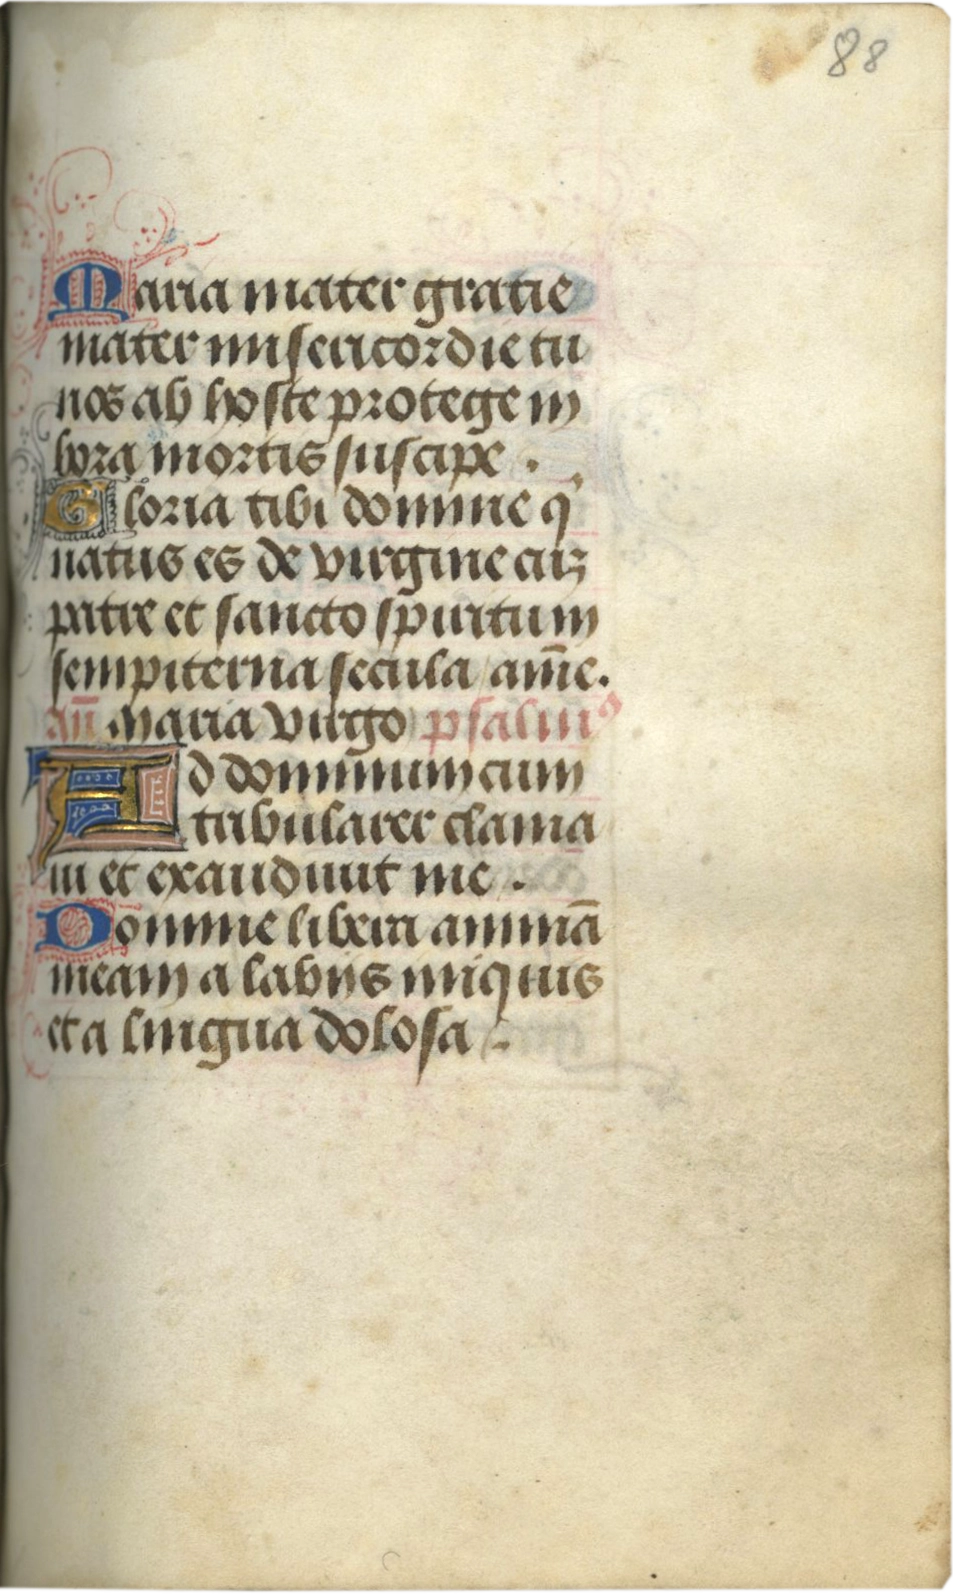 88
Maria mater gratie
mater misericordie tu
nos ab hoste protege in
hora mortis suscipe .
Gloria tibi domine q̓
natus es de virgine cuꝫ
patre et sancto sp̄iritum
sempiterna secula am̄e.
an̄ Maria virgo psalmꝰ
Ad dominum cum
tribularer clama
ui et exaudiuit me .
Domine libera animā
meam a labijs iniquis
et a lingua dolosa .